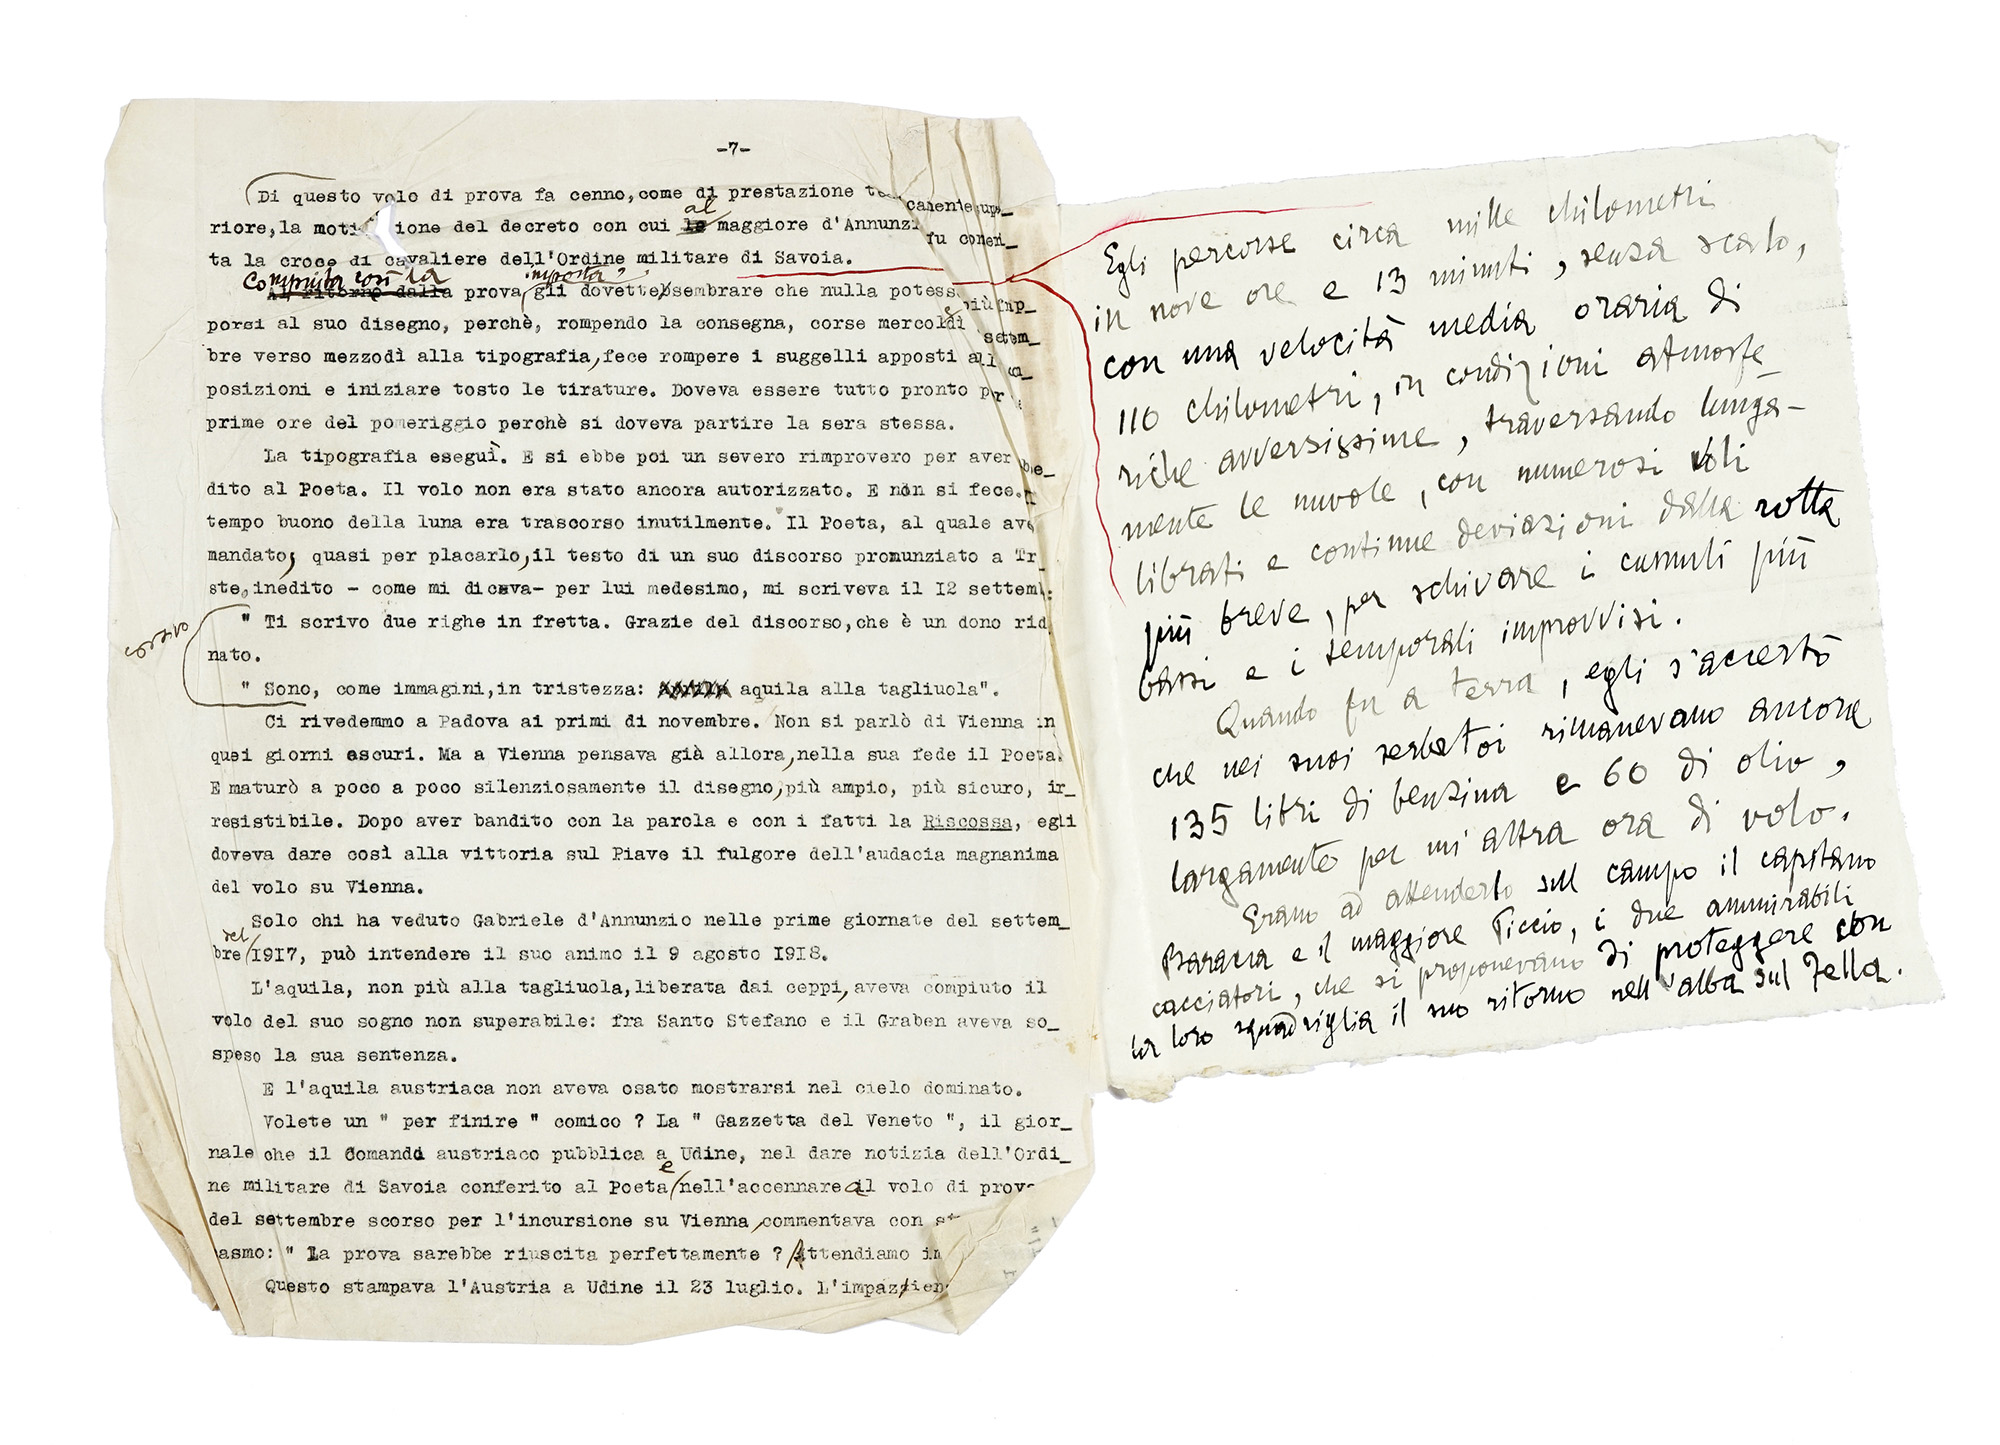 -7-
Di questo volo di prova fa cenno, come di prestazione te camente up_
riore, la moti ione del decreto con cui le al maggiore d'Annunzi fu conferi_
ta la croce di cavaliere dell'Ordine militare di Savoia.
Compiuta con la imposta,
Al ritorno dalla prova gli dovette sembrare che nulla potess più frap_
porsi al suo disegno, perchè, rompendo la consegna, corse mercoldì settem_
bre verso mezzodì alla tipografia, fece rompere i suggelli apposti all
posizioni e iniziare tosto le tirature. Doveva essere tutto pronto p r
prime ore del pomeriggio perchè si doveva partire la sera stessa.
La tipografia eseguì. E si ebbe poi un severo rimprovero per aver bbe_
dito al Poeta. Il volo non era stato ancora autorizzato. E non si fece.
tempo buono della luna era trascorso inutilmente. Il Poeta, al quale ave
mandato, quasi per placarlo, il testo di un suo discorso pronunziato a Tr
ste, inedito - come mi diceva- per lui medesimo, mi scriveva il 12 settem
corsivo
" Ti scrivo due righe in fretta. Grazie del discorso, che è un dono rid
nato.
" Sono, come immagini, in tristezza: aquila alla tagliuola".
Ci rivedemmo a Padova ai primi di novembre. Non si parlò di Vienna in
quei giorni oscuri. Ma a Vienna pensava già allora, nella sua fede il Poeta.
E maturò a poco a poco silenziosamente il disegno, più ampio, più sicuro, ir_
resistibile. Dopo aver bandito con la parola e con i fatti la Riscossa, egli
doveva dare così alla vittoria sul Piave il fulgore dell'audacia magnanima
del volo su Vienna.
Solo chi ha veduto Gabriele d'Annunzio nelle prime giornate del settem_
bre del 1917, può intendere il suo animo il 9 agosto 1918.
L'aquila, non più alla tagliuola, liberata dai ceppi, aveva compiuto il
volo del suo sogno non superabile: fra Santo Stefano e il Graben aveva so_
speso la sua sentenza.
E l'aquila austriaca non aveva osato mostrarsi nel cielo dominato.
Volete un " per finire " comico ? La " Gazzetta del Veneto ", il gior_
nale che il Comando austriaco pubblica a Udine, nel dare notizia dell'Ordi_
ne militare di Savoia conferito al Poeta e nell'accennare al volo di prova
del settembre scorso per l'incursione su Vienna, commentava con
asmo: " La prova sarebbe riuscita perfettamente ? Attendiamo in
Questo stampava l'Austria a Udine il 23 luglio. L'impazien
Egli percorse circa mille chilometri
in nove ore e 13 minuti, senza scalo,
con una velocità media oraria di
110 chilometri, in condizioni atmosfe_
riche avversissime, traversando lunga-
mente le nuvole, con numerosi voli
librati e continue deviazioni dalla rotta
più breve, per schivare i cumuli più
bassi e i temporali improvvisi.
Quando fu a terra, egli s'accertò
che nei suoi serbatoi rimanevano ancora
135 litri di benzina e 60 di olio,
largamente per un'altra ora di volo.
Erano ad attenderlo sul campo il capitano
Baracca e il maggiore Piccio, i due ammirabili
cacciatori, che si proponevano di proteggere con
la loro squadriglia il suo ritorno nell'alba sul Fella.